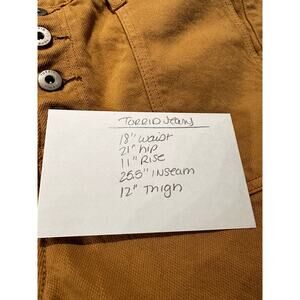 TORRID Jeans
18" waist
21" hip
11" Rise
25.5" inseam
12" Thigh